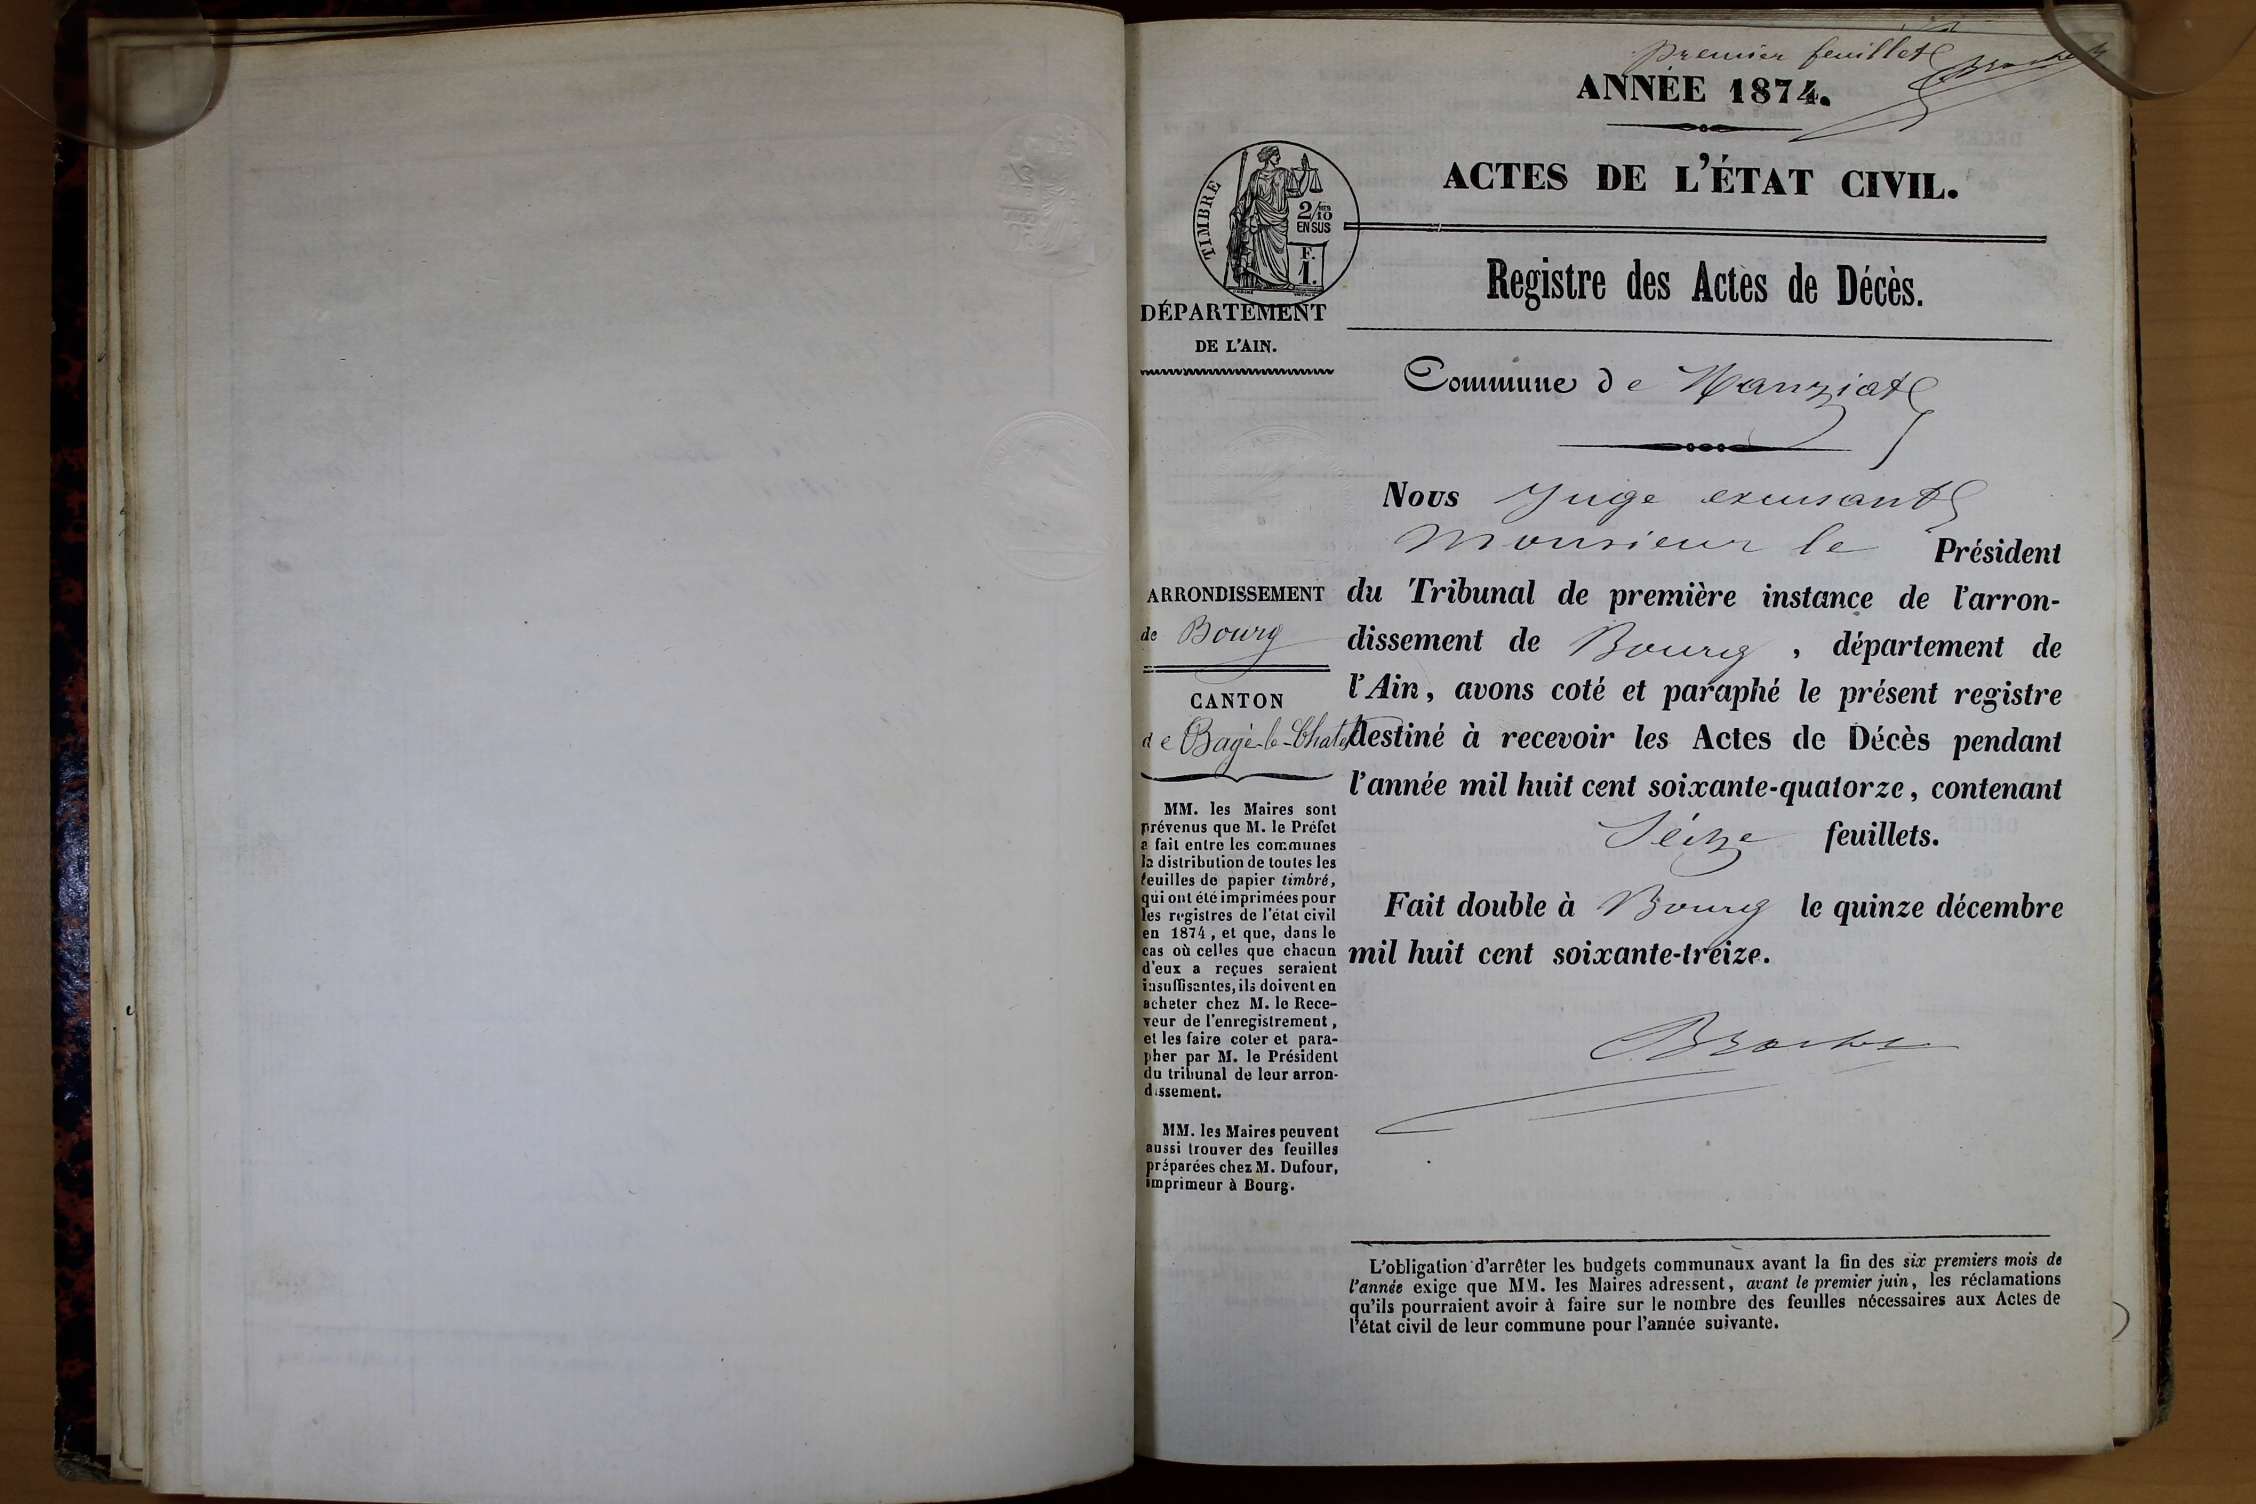 premier feuillet
ANNÉE 1874.
ACTES DE L'ÉTAT CIVIL.
TIMBRE
2/10 EN SUS
F.
1.
Registre des Actes de Décès.
DÉPARTEMENT
DE L'AIN.
Commune de Manziat
ARRONDISSEMENT
de Bourg
CANTON
de Bagé-le-Chatel
MM. les Maires sont
prévenus que M. le Préfet
a fait entre les communes
la distribution de toutes les
feuilles de papier timbré,
qui ont été imprimées pour
les registres de l'état civil
en 1874, et que, dans le
cas où celles que chacun
d'eux a reçues seraient
insuffisantes, ils doivent en
acheter chez M. le Rece-
veur de l'enregistrement,
et les faire coter et para-
pher par M. le Président
du tribunal de leur arron-
dissement.
MM. les Maires peuvent
aussi trouver des feuilles
préparées chez M. Dufour,
imprimeur à Bourg.
Nous Juge
Monsieur le Président
du Tribunal de première instance de l'arron-
dissement de Bourg, département de
l'Ain, avons coté et paraphé le présent registre
destiné à recevoir les Actes de Décès pendant
l'année mil huit cent soixante-quatorze, contenant
Seize feuillets.
Fait double à Bourg le quinze décembre
mil huit cent soixante-treize.
L'obligation d'arrêter les budgets communaux avant la fin des six premiers mois de
l'année exige que MM. les Maires adressent, avant le premier juin, les réclamations
qu'ils pourraient avoir à faire sur le nombre des feuilles nécessaires aux Actes de
l'état civil de leur commune pour l'année suivante.